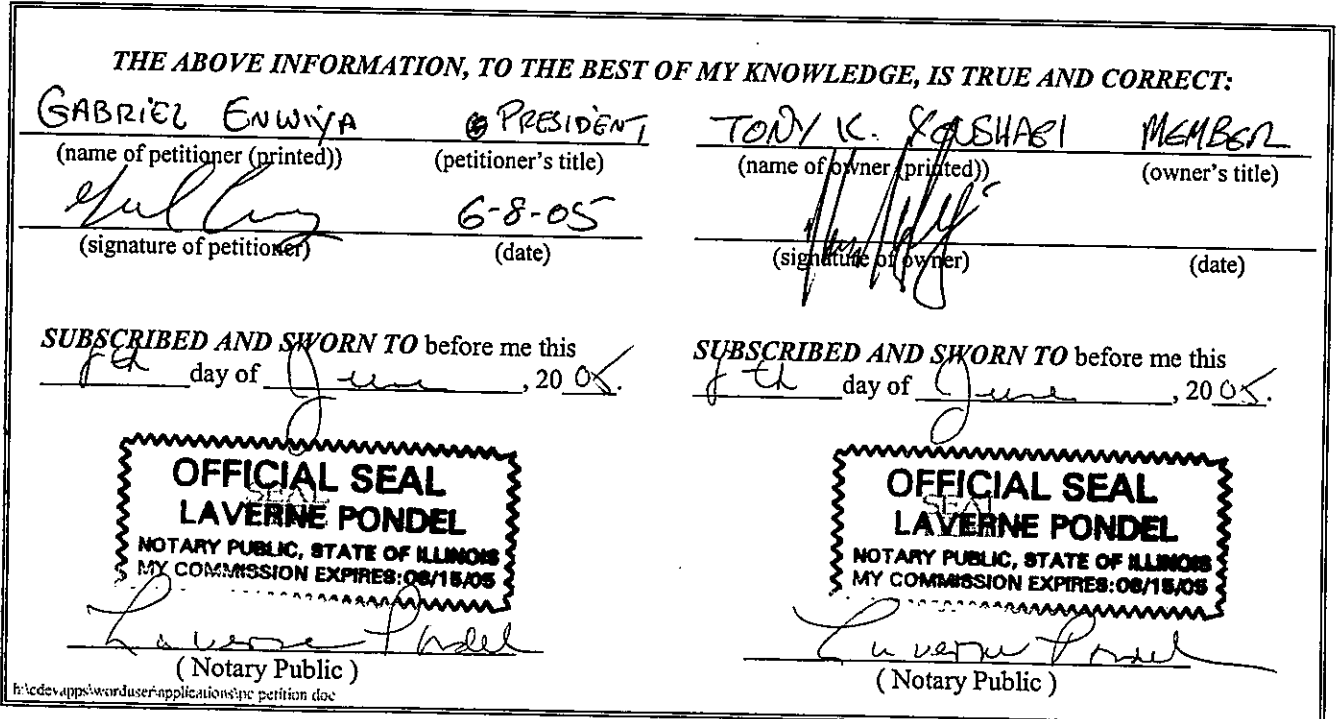 THE ABOVE INFORMATION, TO THE BEST OF MY KNOWLEDGE, IS TRUE AND CORRECT:
GABRIEL ENWIYA PRESIDENT
(name of petitioner (printed)) (petitioner's title)
6-8-05
(signature of petitioner) (date)
SUBSCRIBED AND SWORN TO before me this
8th day of June, 2005.
OFFICIAL SEAL
SEAL
LAVERNE PONDEL
NOTARY PUBLIC, STATE OF ILLINOIS
MY COMMISSION EXPIRES:08/15/05
Laverne Pondel
( Notary Public )
h:\cdevapps\worduser\applications\pc petition doc
TONY K. MEMBER
(name of owner (printed)) (owner's title)
(signature of owner) (date)
SUBSCRIBED AND SWORN TO before me this
8th day of June, 2005.
OFFICIAL SEAL
SEAL
LAVERNE PONDEL
NOTARY PUBLIC, STATE OF ILLINOIS
MY COMMISSION EXPIRES:08/15/05
Laverne Pondel
( Notary Public )